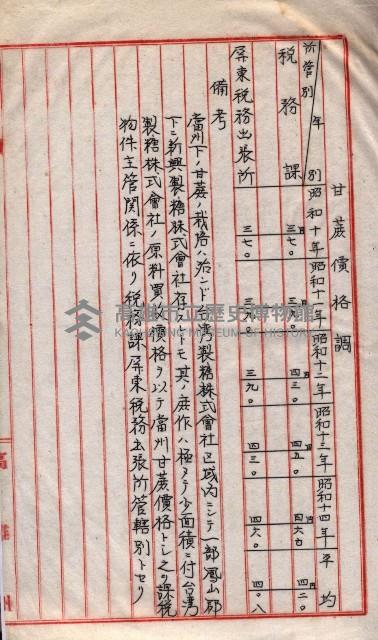 甘蔗價格調
所管別 年別 昭和十年 昭和十一年 昭和十二年 昭和十三年 昭和十四年 平均
税務課 三円七〇 三円九〇 四円三〇 四円五〇 四円六〇 四円二〇
屏東税務出張所 三七〇 三九〇 三九〇 四三〇 四六〇 四〇八
備考
當州下ノ甘蔗ノ栽培ハ殆ンド台湾製糖株式會社区域内ニシテ一部鳳山郡
下ニ新興製糖株式會社存スルトモ其ノ庶作ハ極メテ少面積ニ付台湾
製糖株式會社ノ原料買收價格ヲ以テ當州甘蔗價格トシ之ヲ課税
物件主管関係ニ依リ税務課屏東税務出張所管轄別トセリ
高雄市立歷史博物館
KAOHSIUNG MUSEUM OF HISTORY
高雄州